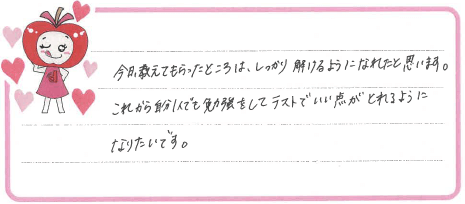 今日、教えてもらったところは、しっかり解けるようになれたと思います。
これから自分1人でも勉強をしてテストでいい点がとれるように
なりたいです。